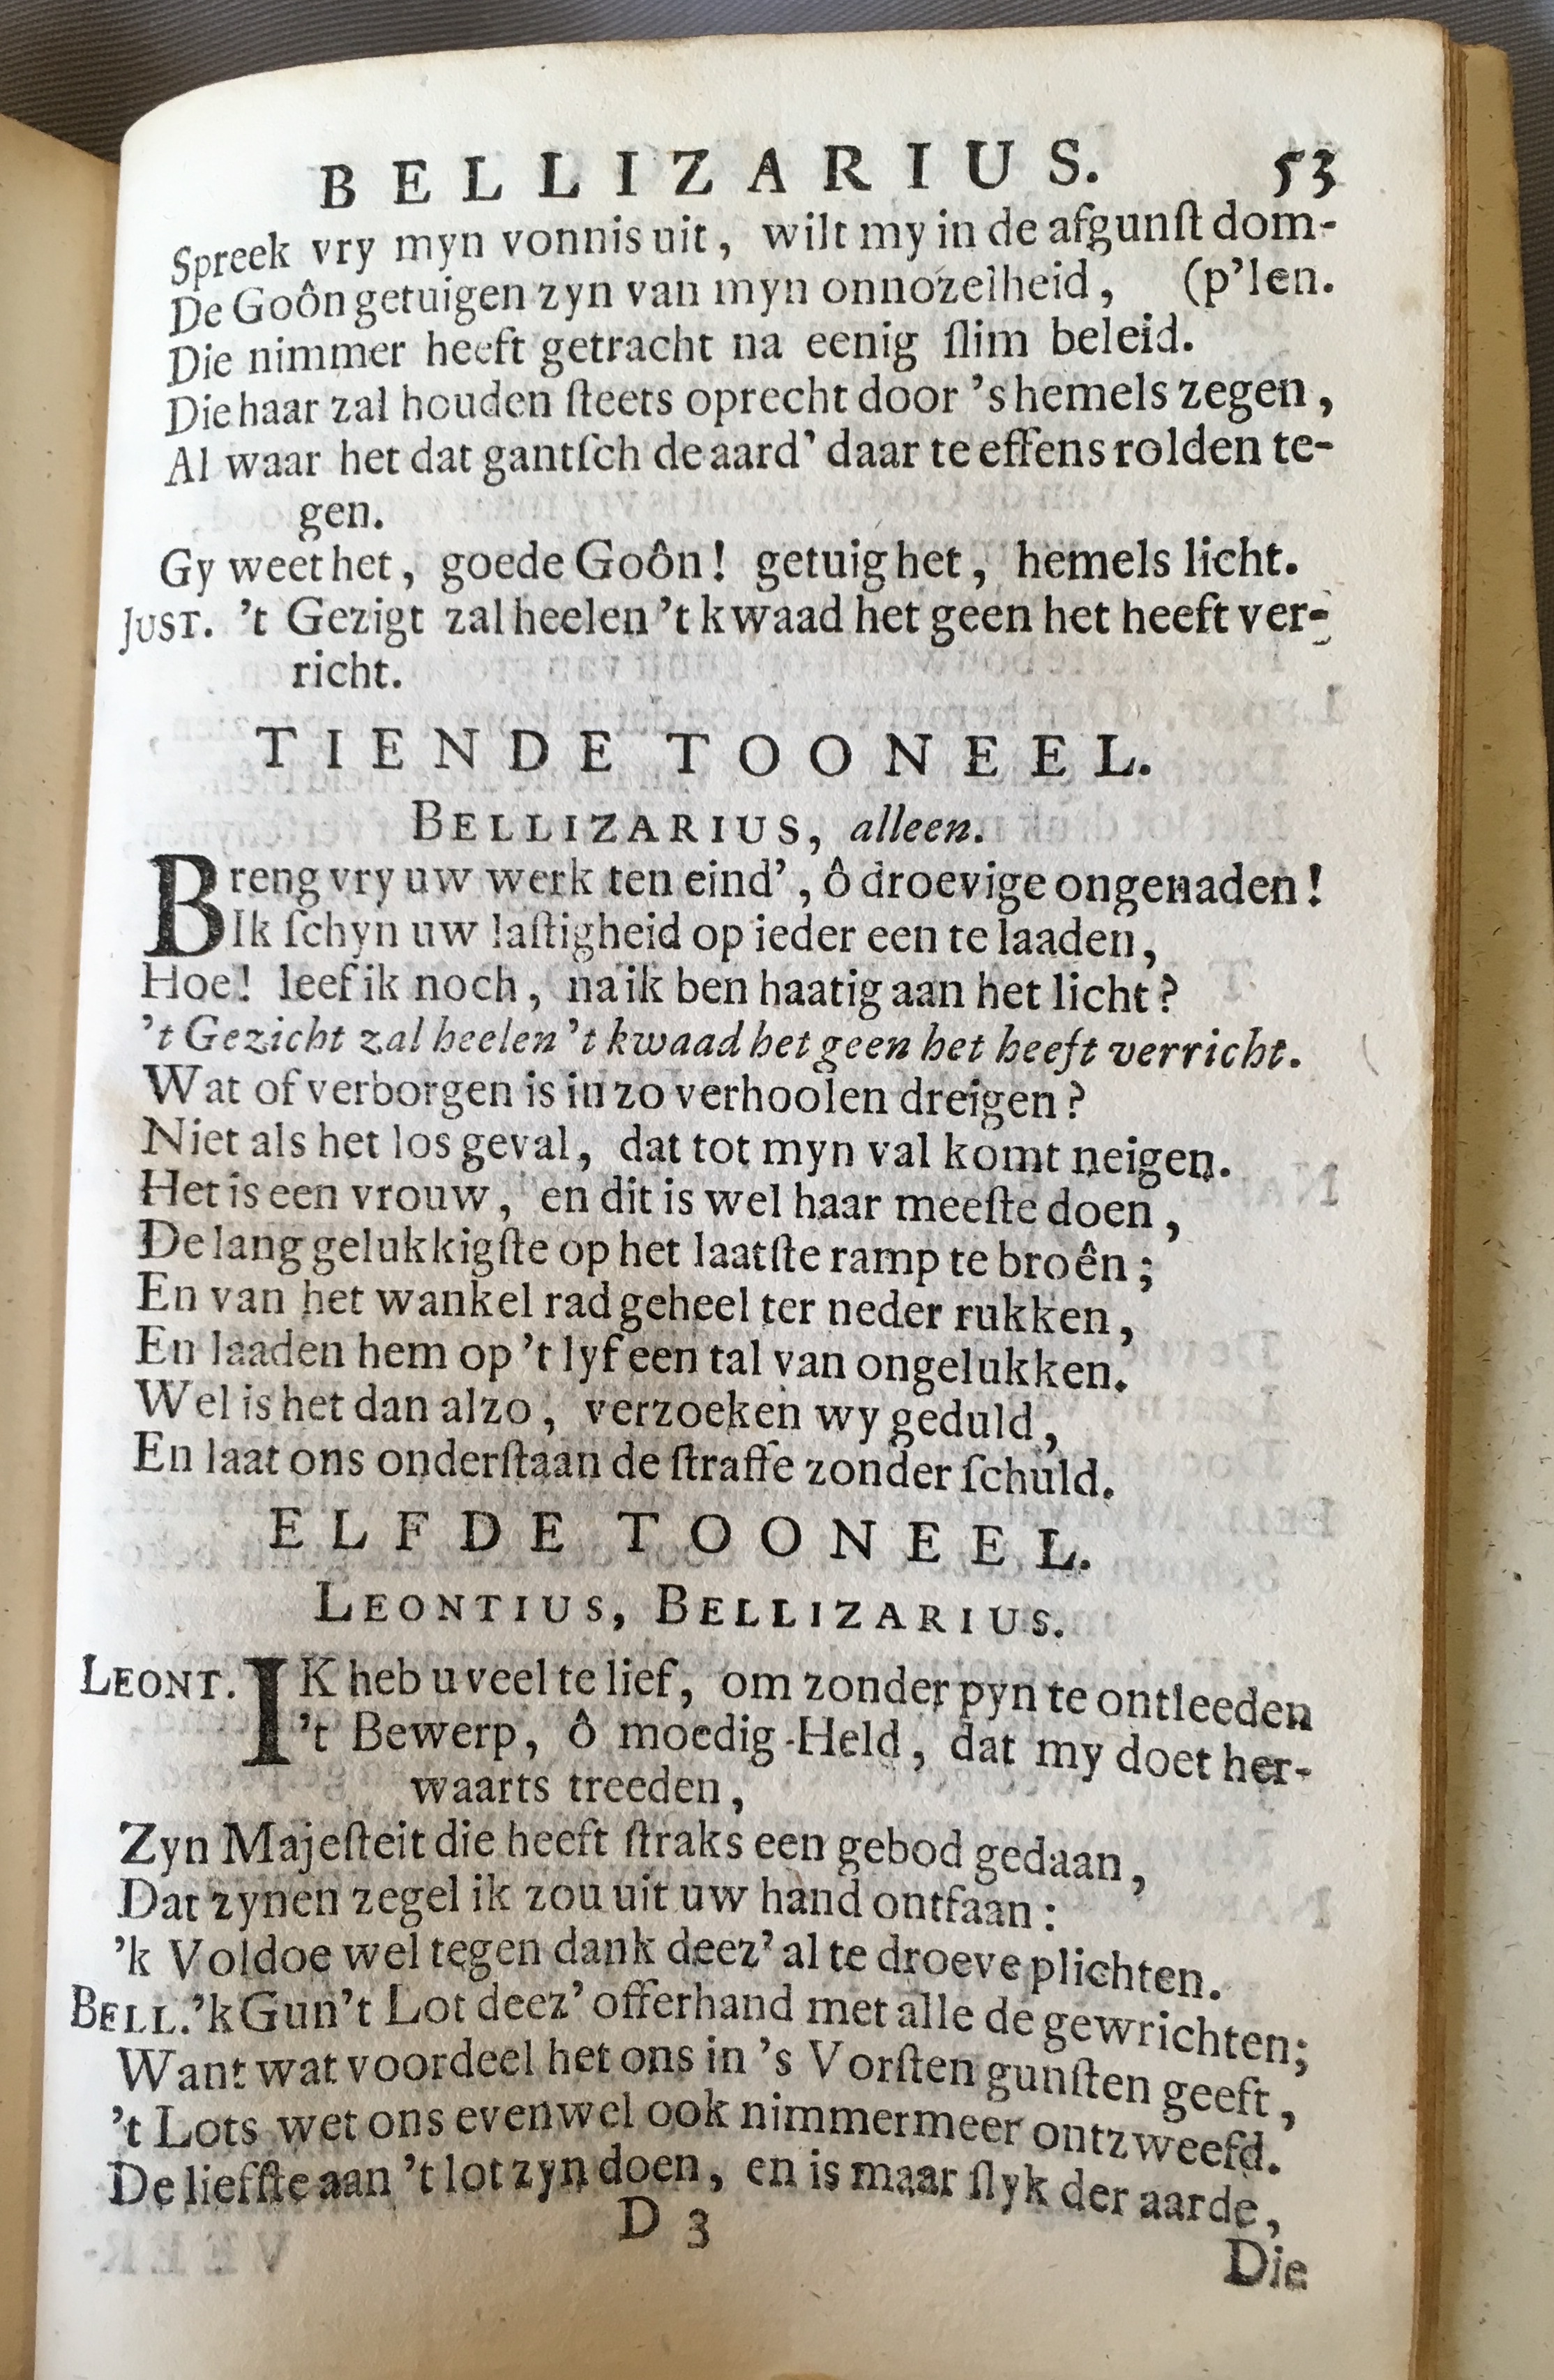 BELLIZARIUS. 53
Spreek vry myn vonnis uit, wilt my in de afgunſt dom-
De Goôn getuigen zyn van myn onnozelheid, (p'len.
Die nimmer heeft getracht na eenig ſlim beleid.
Die haar zal houden ſteets oprecht door 's hemels zegen,
Al waar het dat gantſch de aard' daar te effens rolden te-
gen.
Gy weet het, goede Goôn! getuig het, hemels licht.
JUST. 't Gezigt zal heelen 't kwaad het geen het heeft ver-
richt.
TIENDE TOONEEL.
BELLIZARIUS, alleen.
Breng vry uw werk ten eind', ô droevige ongenaden!
Ik ſchyn uw laſtigheid op ieder een te laaden,
Hoe! leef ik noch, na ik ben haatig aan het licht?
't Gezicht zal heelen 't kwaad het geen het heeft verricht.
Wat of verborgen is in zo verhoolen dreigen?
Niet als het los geval, dat tot myn val komt neigen.
Het is een vrouw, en dit is wel haar meeſte doen,
De lang gelukkigſte op het laatſte ramp te broên;
En van het wankel rad geheel ter neder rukken,
En laaden hem op 't lyf een tal van ongelukken.
Wel is het dan alzo, verzoeken wy geduld,
En laat ons onderſtaan de ſtraffe zonder ſchuld.
ELFDE TOONEEL.
LEONTIUS, BELLIZARIUS.
LEONT. IK heb u veel te lief, om zonder pyn te ontleeden
't Bewerp, ô moedig-Held, dat my doet her-
waarts treeden,
Zyn Majeſteit die heeft ſtraks een gebod gedaan,
Dat zynen zegel ik zou uit uw hand ontfaan:
'k Voldoe wel tegen dank deez' al te droeve plichten.
BELL. 'k Gun't Lot deez' offerhand met alle de gewrichten;
Want wat voordeel het ons in 's Vorſten gunſten geeft,
't Lots wet ons evenwel ook nimmermeer ontzweefd.
De liefſte aan 't lot zyn doen, en is maar ſlyk der aarde,
D 3
Die